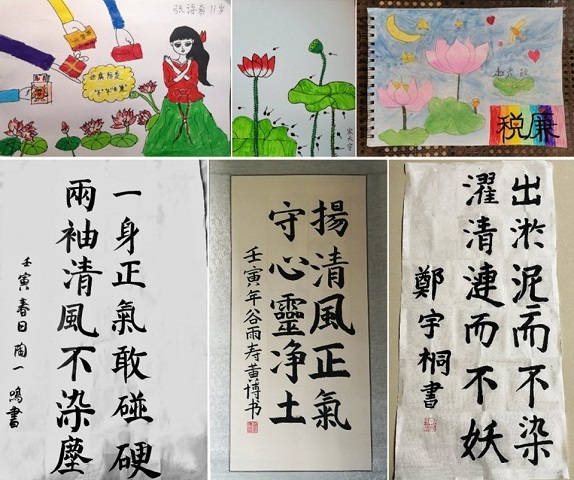 张语希 11岁
税廉
一身正氣敢碰硬
兩袖清風不染塵
壬寅春日 陶一鳴書
揚清風正氣
守心靈净土
壬寅年谷雨寿黄博书
出淤泥而不染
濯清漣而不妖
鄭宇桐書